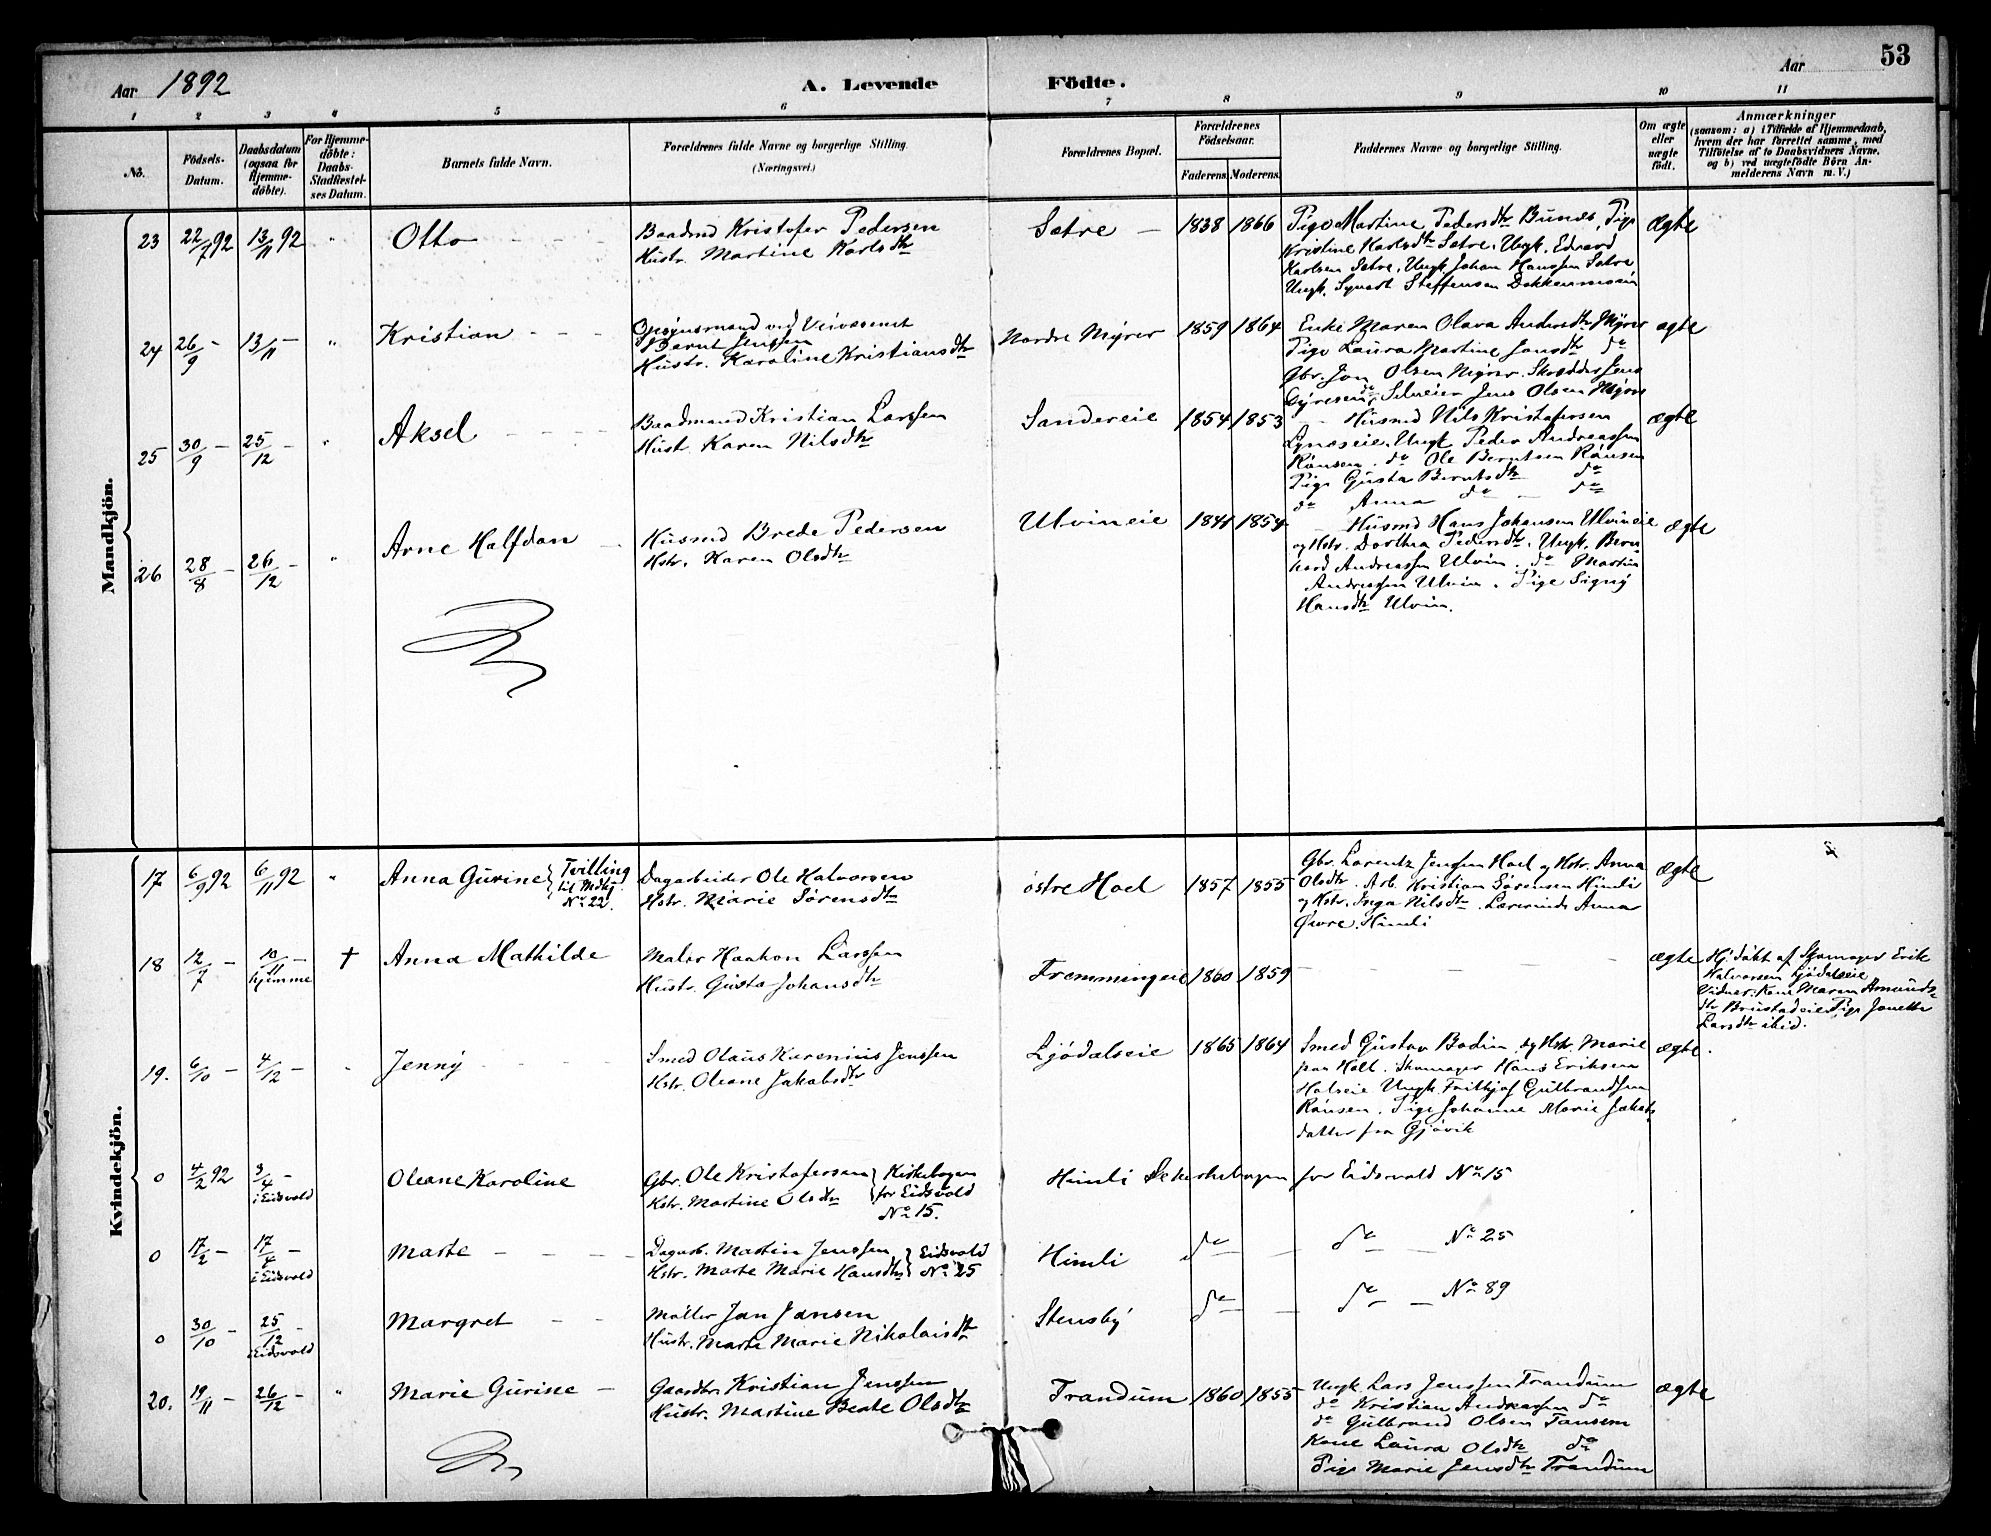 53
Aar 1892
A. Levende
Födte.
Aar
1 2 3 4 5 6 7 8 9 10 11
No.
Födsels-
Datum.
Daabsdatum
(ogsaa for
Hjemme-
döbte).
For Hjemme-
döbte:
Daabs-
Stadfæstel-
ses Datum.
Barnets fulde Navn.
Forældrenes fulde Navne og borgerlige Stilling.
(Næringsvei.)
Forældrenes Bopæl.
Forældrenes
Födselsaar.
Faderens.
Moderens.
Faddernes Navne og borgerlige Stilling.
Om ægte
eller
uægte
födt.
Anmærkninger
(saasom: a) i Tilfælde af Hjemmedaab,
hvem der har forrettet samme, med
Tilföielse af to Daabsvidners Navne,
og b) ved uægtefödte Börn An-
melderens Navn m. V.)
Mandkjön.
23 22/7 92 13/11 92 " Otto
Baadmd Kristofer Pedersen
Hustr. Martine Karlsdtr
Sætre 1838 1866
Pige Martine Pedersdtr Bunæs, Pige
Kristine Karlsdtr Sætre, Ungk. Edvard
Karlsen Sætre, Ungk. Johan Hanssen Sætre
Ungk. Syvert Steffensen Dokkenmoen
Ægte
24 26/9 - 13/11 - " Kristian
Opsynsmand ved Veivæsenet
Bernt Jenssen
Hustr. Karoline Kristiansdtr
Nordre Myrer 1859 1864
Enke Maren Olava Andersdtr Myrer
Pige Laura Martine Jonsdtr do
Gbr. Jon Olsen Myrer. Skrædder Jens
Syresen do, Selveier Jens Olsen Myrer
ægte
25 30/9 - 25/12 - " Aksel
Baadmand Kristian Larssen
Hust. Karen Nilsdtr
Sandereie 1854 1853
Husmd Nils Kristofersen
Lynæseie, Ungk Peder Andreassen
Rånsen. do Ole Berntsen Rånsen
Pige Gusta Berntsdtr do
do Anna do - do
ægte
26 28/8 - 26/12 - " Arne Halfdan
Husmd Brede Pedersen
Hstr. Karen Olsdtr
Ulvineie 1841 1854
Husmd Hans Johansen Ulvineie
og Hstr. Dorthea Pedersdtr, Ungk. Bern-
hard Andreassen Ulvin. do Martin
Andreassen Ulvin. Pige Signy
Hansdtr Ulvin.
ægte
Kvindekjön.
17 6/9 92 6/11 92 " Anna Gurine
Tvilling
til Mdkj.
No 22.
Dagarbeider Ole Halvorsen
Hstr. Marie Sørensdtr
østre Hoel 1857 1855
Gbr. Lorentz Jensen Hoel og Hstr. Anna
Olsdtr. Arb. Kristian Sørensen Himli
og Hstr. Inga Nilsdtr. Lærerinde Anna
Øvre Himli
ægte
18 12/7 - 10/11 - hjemme + Anna Mathilde
Maler Haakon Larssen
Hustr. Gusta Johansdtr
Fremmingeie 1860 1859
ægte
Hj.døbt af Skomager Erik
Halvorsen Ljødalseie
Vidner: Kone Maren Amunds-
dtr Brustadeie, Pige Janette
Larsdtr ibid.
19. 6/10 - 4/12 - " Jenny
Smed Olaus Karenius Jenssen
Hstr. Oleane Jakobsdtr
Ljødalseie 1865 1864
Smed Gustav Bodin og Hstr. Marie
paa Holt. Skomager Hans Eriksen
Holseie Ungk. Frithjof Gulbrandsen
Rånsen. Pige Johanne Marie Jakobs
datter fra Gjøvik
ægte.
0 4/2 92 3/4 - i Eidsvold Oleane Karoline
Gbr. Ole Kristofersen
Hstr. Martine Olsdtr
Kirkebogen
for Eidsvold
No 15.
Himli Se kirkebogen for Eidsvold No 15
0 17/2 - 17/4 - i Eidsvold Marte
Dagarb. Martin Jenssen
Hstr. Marte Marie Hansdtr
Eidsvold
No 25
Himli do do No 25
0 30/10 - 25/12 - i Eidsvold Margret
Møller Jan Jansen
Hustr. Marte Marie Nikolaisdtr
Stensby do do No 89
20. 19/11 - 26/12 - " Marie Gurine
Gaardbr. Kristian Jenssen
Hustr. Martine Beate Olsdtr
Trandum 1860 1855
Ungk. Lars Jenssen Trandum
do Kristian Andreassen do
do Gulbrand Olsen Tansem
Kone Laura Olsdtr do
Pige Marie Jensdtr Trandum
ægte